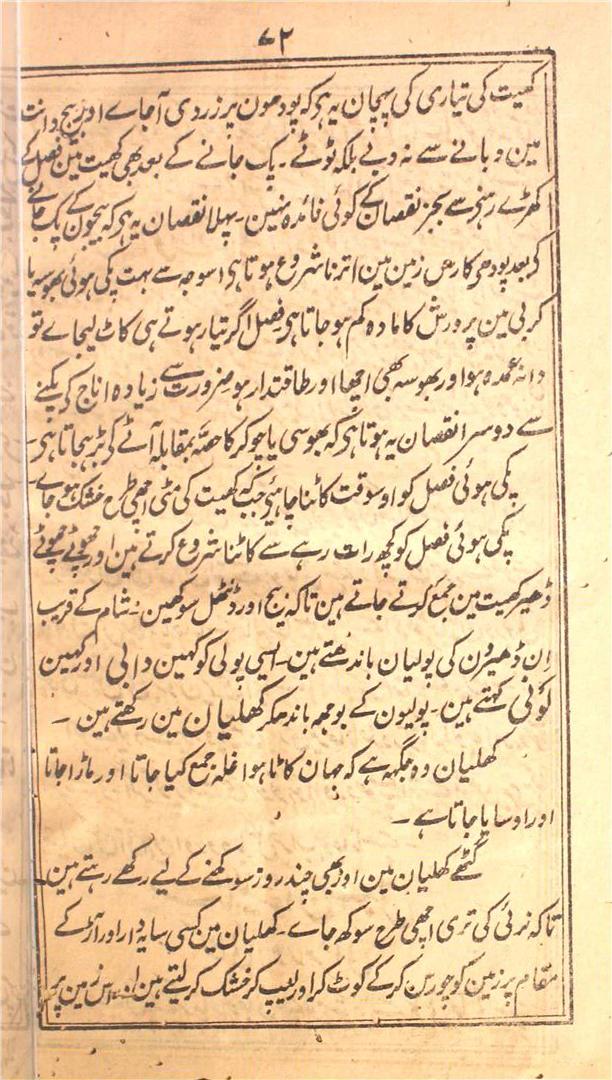 ۷۲
کھیت کی تیاری کی پہچان یہ ہی کہ پودھون پر زردی آجاے اور بیج دانت
مین دبانے سے نہ دبے بلکہ ٹوٹے ۔ پک جانے کے بعد بھی کھیت مین فصل کے
کھڑے رہنی سے بجز نقصان کے کوئی فائدہ نہین ۔ پہلا نقصان یہ ہی کہ بیجون کے پک جانے
کے بعد پودھی کا رس زمین مین اترنا شروع ہوتا ہی اسوجہ سے بہت پکی ہوئی بھوسہ یا
کربی مین پرورش کا مادہ کم ہو جاتا ہی فصل اگر تیار ہوتے ہی کاٹ لیجاے تو
دانہ عمدہ ہو اور بھوسہ بھی اچھا اور طاقتدار ہو ضرورت سے زیادہ اناج کی پکنے
سے دوسرا نقصان یہ ہوتا ہی کہ بھوسی یا چوکر کا حصہ بمقابلہ آٹے کی بڑہجاتا ہی ۔
پکی ہوئی فصل کو اوسوقت کاٹنا چاہیئے جبکہ کھیت کی مٹی اچھی طرح خشک ہو جاے
پکی ہوئی فصل کو کچھ رات رہے سے کاٹنا شروع کرتے ہین اور چھوٹے چھوٹے
ڈھیر کھیت مین جمع کرتے جاتے ہین تاکہ بیج اور ڈنٹھل سوکھین ۔ شام کے قریب
ان ڈھیرون کی پولیان باندھتے ہین ۔ ایسی پولی کو کہین دابی اور کہین
لوئی کہتے ہین ۔ پولیون کے بوجھ باندھکر کھلیان مین رکھتے ہین ۔
کھلیان وہ جگہہ ہے کہ جہان کاٹا ہوا غلہ جمع کیا جاتا اور ماڑا جاتا
اور اوسایا جاتا ہے ۔
گٹھے کھلیان مین اور بھی چند روز سوکھنے کے لیے رکھے رہتے ہین
تاکہ نرئی کی تری اچھی طرح سوکھ جاے ۔ کھلیان مین کسی سایہ دار اور اڑ کے
مقام پر زمین کو چورس کرکے کوٹ کر اور لیپ کر خشک کر لیتے ہین اس زمین پر